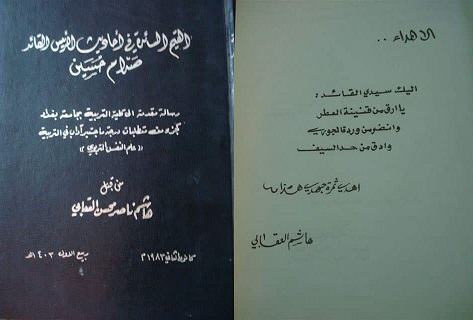 القيم السائدة في أحاديث الرئيس القائد
صدام حسين
رسالة مقدمة الى كلية التربية بجامعة بغداد
كجزء من متطلبات درجة ماجستير آداب في التربية
« علم النفس التربوي »
من قبل
هاشم ناصر محسن العقابي
كانون الثاني ١٩٨٣ م
ربيع الاول ١٤٠٣ هـ
الاهداء . .
اليك سيدي القائد :
يا ارق من قنينة العطر
وانضر من وردة الجوري
وادق من حد السيف
اهدي ثمرة جهدي هذا
هاشم العقابي